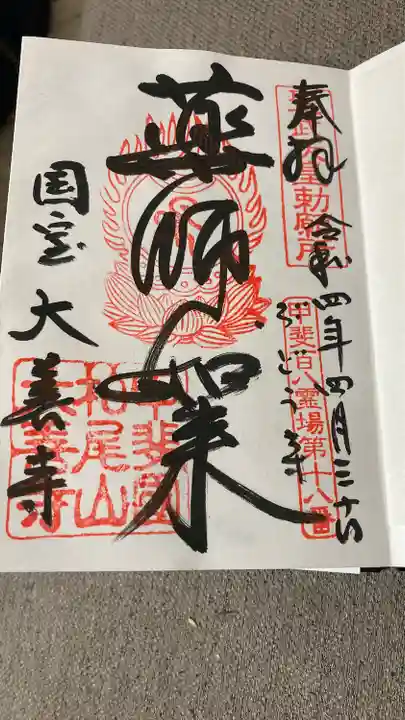 奉拝 令和四年四月三十日
聖武天皇勅願所
甲斐百八霊場第十八番
ぶどう寺
薬師如来
国宝 大善寺
甲斐國
柏尾山
大善寺